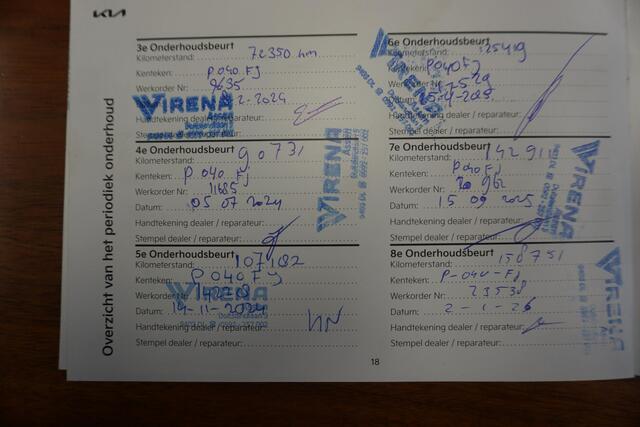 KIA
Overzicht van het periodiek onderhoud
3e Onderhoudsbeurt
Kilometerstand: 72350 km
Kenteken: P 040 FJ
Werkorder Nr: 9635
2-2024
VIRENA
Assen
Handtekening dealer / reparateur:
Stempel dealer / reparateur:
4e Onderhoudsbeurt
Kilometerstand: 90731
Kenteken: P 040 FJ
Werkorder Nr: 11685
Datum: 05 07 2024
Handtekening dealer / reparateur:
Stempel dealer / reparateur:
VIRENA
Assen
5e Onderhoudsbeurt
Kilometerstand: 107182
Kenteken: P 040 FJ
Werkorder Nr:
Datum: 14-11-2024
VIRENA
Handtekening dealer / reparateur:
Stempel dealer / reparateur:
6e Onderhoudsbeurt
Kilometerstand: 125419
Kenteken: P 040 FJ
Werkorder Nr:
Datum:
VIRENA
Handtekening dealer / reparateur:
Stempel dealer / reparateur:
7e Onderhoudsbeurt
Kilometerstand:
Kenteken: P 040 FJ
Werkorder Nr: 20962
Datum: 15 09 2025
Handtekening dealer / reparateur:
Stempel dealer / reparateur:
VIRENA
8e Onderhoudsbeurt
Kilometerstand: 158751
Kenteken: P-040-FJ
Werkorder Nr: 23538
Datum: 2-1-26
Handtekening dealer / reparateur:
Stempel dealer / reparateur:
VIRENA
18